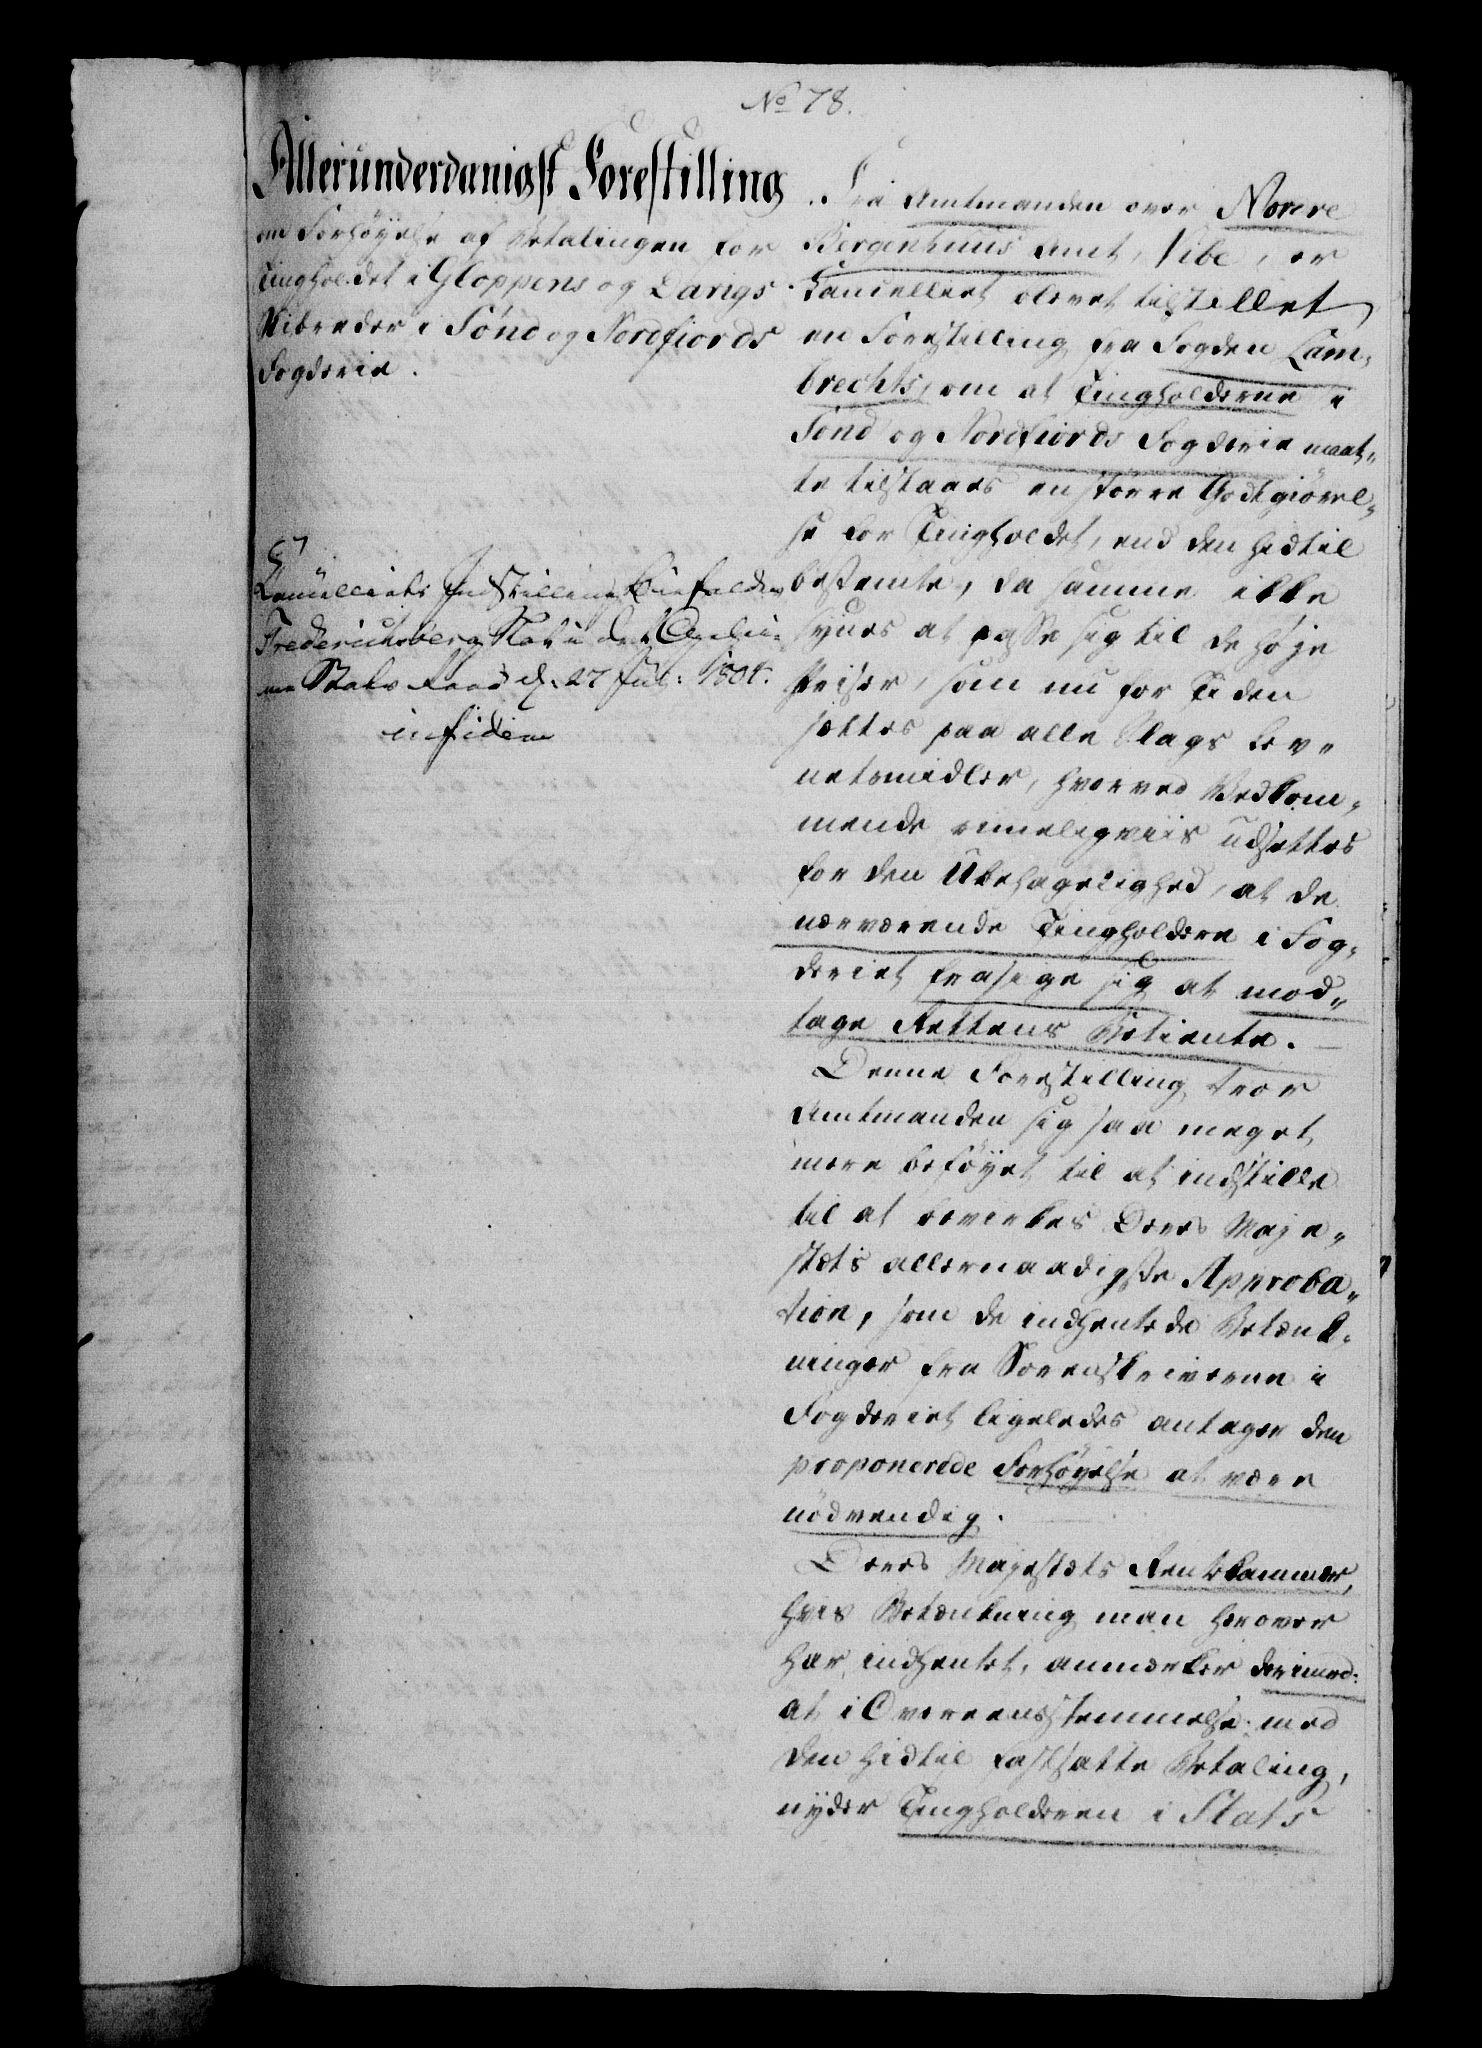 No 78.
Allerunderdanigst Forestilling
om Forhøyelse af Betalingen for
Tingholdet i Gloppens og Davigs
Skibreder i Sönd og Nordfiords
Fogderie.
Cancelliets Indstilling bifaldes
Frederichsberg Slot i det Geheime
Stats Raad d. 27 Jul: 1804.
in fidem
Fra Amtmanden over Nordre
Bergenhuus Amt, Vibe, er
Cancelliet blevet tilstillet
en Forestilling fra Fogden Lam-
brechts, om at Tingholderne i
Sönd og Nordfiords Fogderie maat-
te tilstaaes en større Godtgiörel-
se for Tingholdet, end den hidtil
bestemte, da samme ikke
synes at passe sig til de høje
Priser, som nu for Tiden
sættes paa alle Slags Lev-
netsmidler, hvorved Vedkom-
mende rimeligviis udsættes
for den Ubehagelighed, at de
nærværende Tingholdere i Fog-
deriet frasige sig at mod-
tage Rettens Betiente. —
Denne Forestilling troer
Amtmanden sig saa meget
mere beföyet til at indstille
til at bevirkes Deres Maje-
stæts allernaadigste Approba-
tion, som de indhentede Betænk-
ninger fra Sorenskriverne i
Fogderiet ligeledes antager den
proponerede Forhöyelse at være
nödvendig.
Deres Majestæts Rentekammer,
hvis Betænkning man herover
har indhentet, anmærker derimod:
at i Overeensstemmelse med
den hidtil fastsatte Betaling,
nyder Tingholderen i Stats